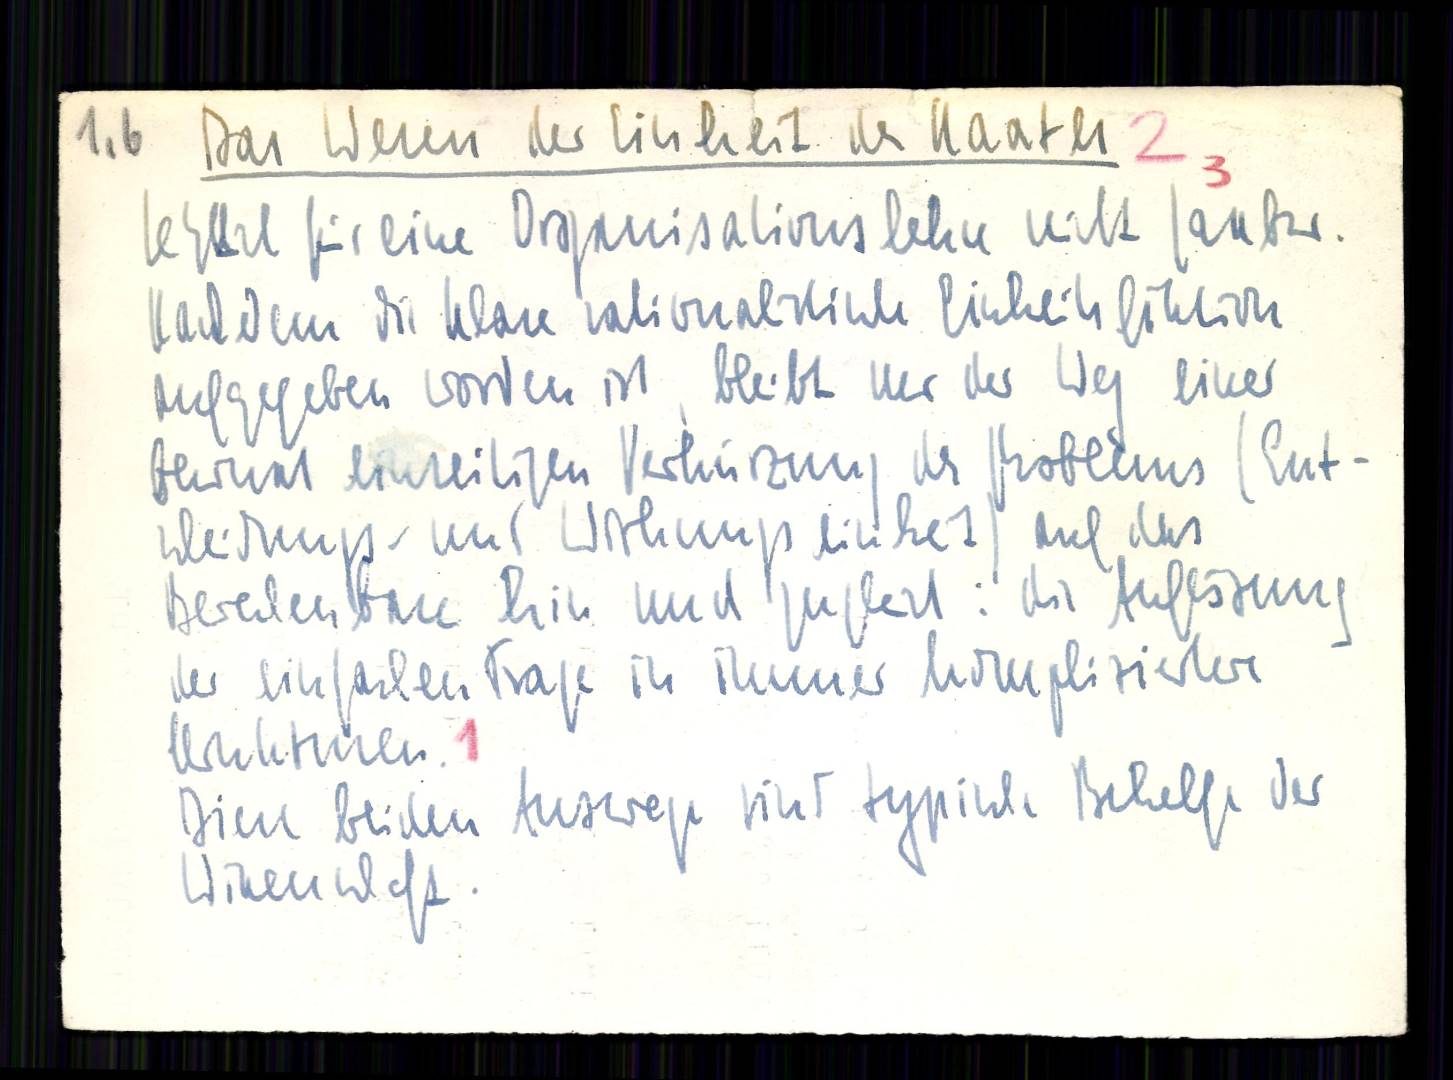 1,6 Das Wesen der Einheit des Staates 2 3
letztlich für eine Organisationslehre nicht fassbar.
Nachdem die klare rationalistische Einheitsfiktion
aufgegeben worden ist, bleibt nur der Weg einer
einseitigen Verkürzung des Problems (Ent-
scheidungs- und Wirkungseinheit) auf das
Berechenbare hin und zugleich: die Auflösung
der einfachen Frage in immer kompliziertere
Strukturen. 1
Diese beiden Auswege sind typische Behelfe der
Wissenschaft.